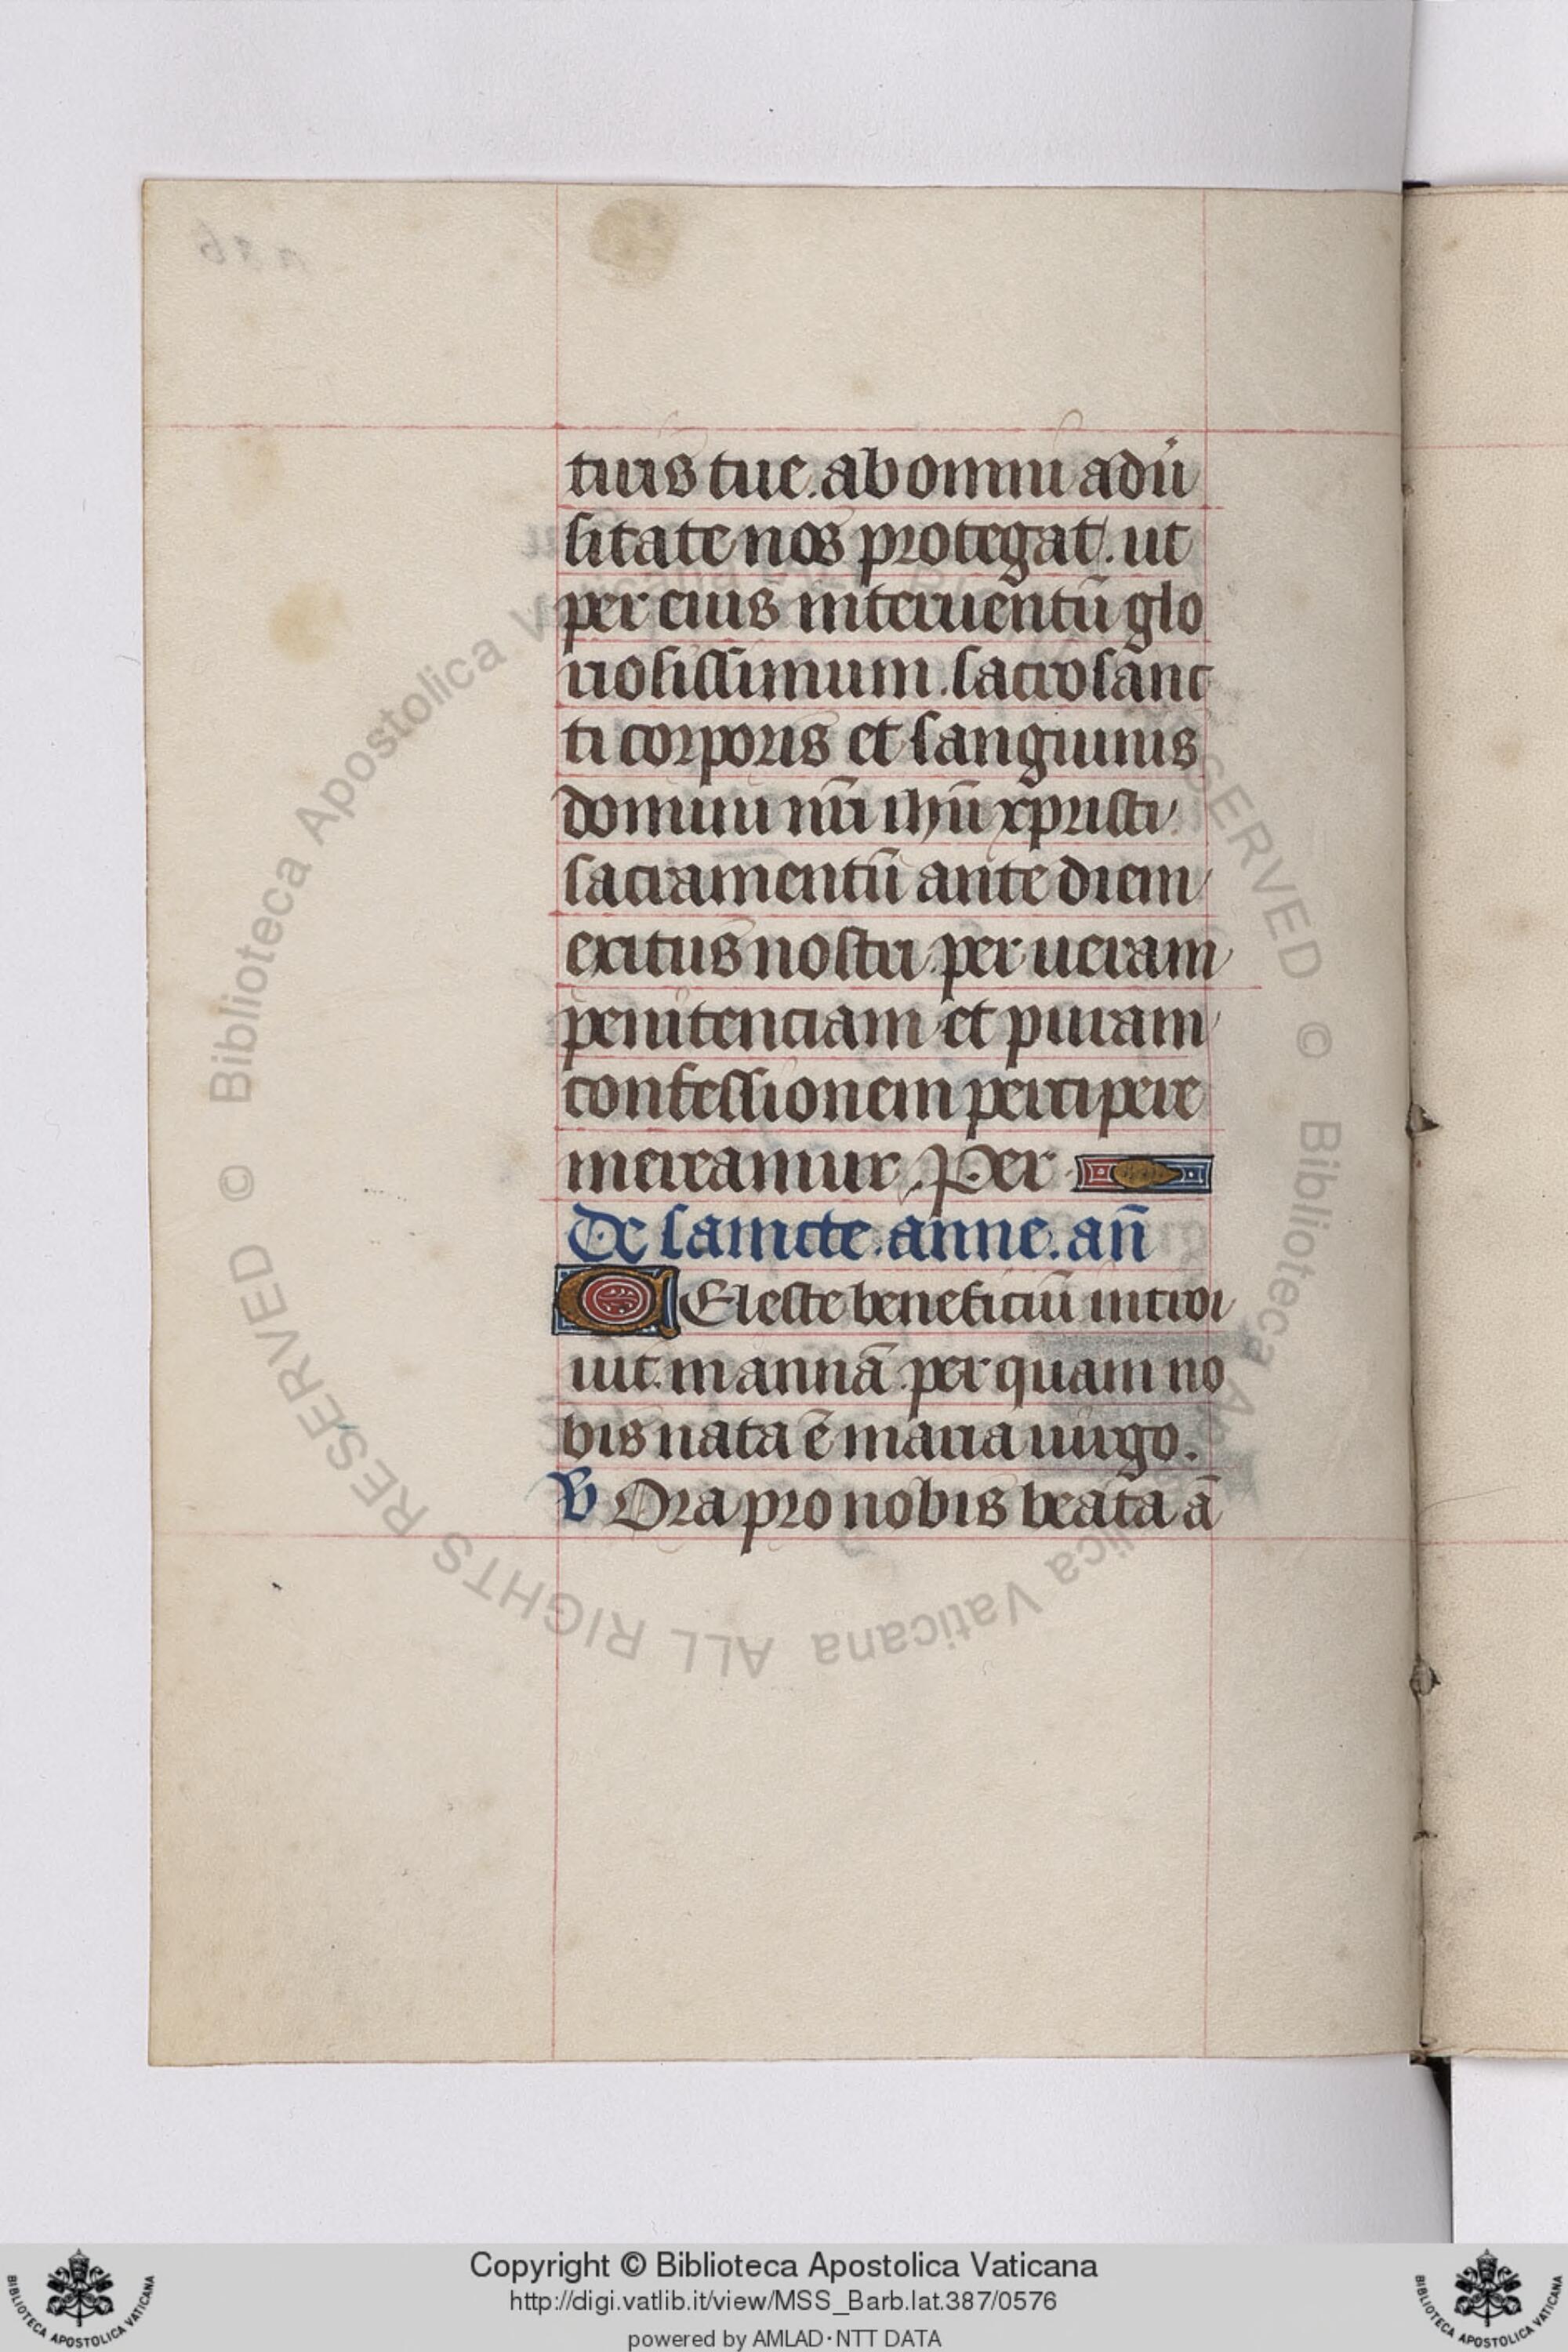 tiris tue. ab omni adũ
sitate nos protegat. ut
per eius interuentũ glo
riosissimum. sacrosanc
ti corporis et sanguinis
domini nr̃i ihũ xpristi
sacramentũ ante diem
exitus nostri. per ueram
penitenciam et puram
confessionem percipere
mereamur. Per
De saincte. anne. an̄
CEleste beneficiũ introi
uit. in annã per quam no
bis nata ẽ maria uirgo.
V Ora pro nobis beata ã
© Biblioteca Apostolica Vaticana ALL RIGHTS RESERVED
Copyright © Biblioteca Apostolica Vaticana
http://digi.vatlib.it/view/MSS_Barb.lat.387/0576
powered by AMLAD·NTT DATA
BIBLIOTECA APOSTOLICA VATICANA
BIBLIOTECA APOSTOLICA VATICANA